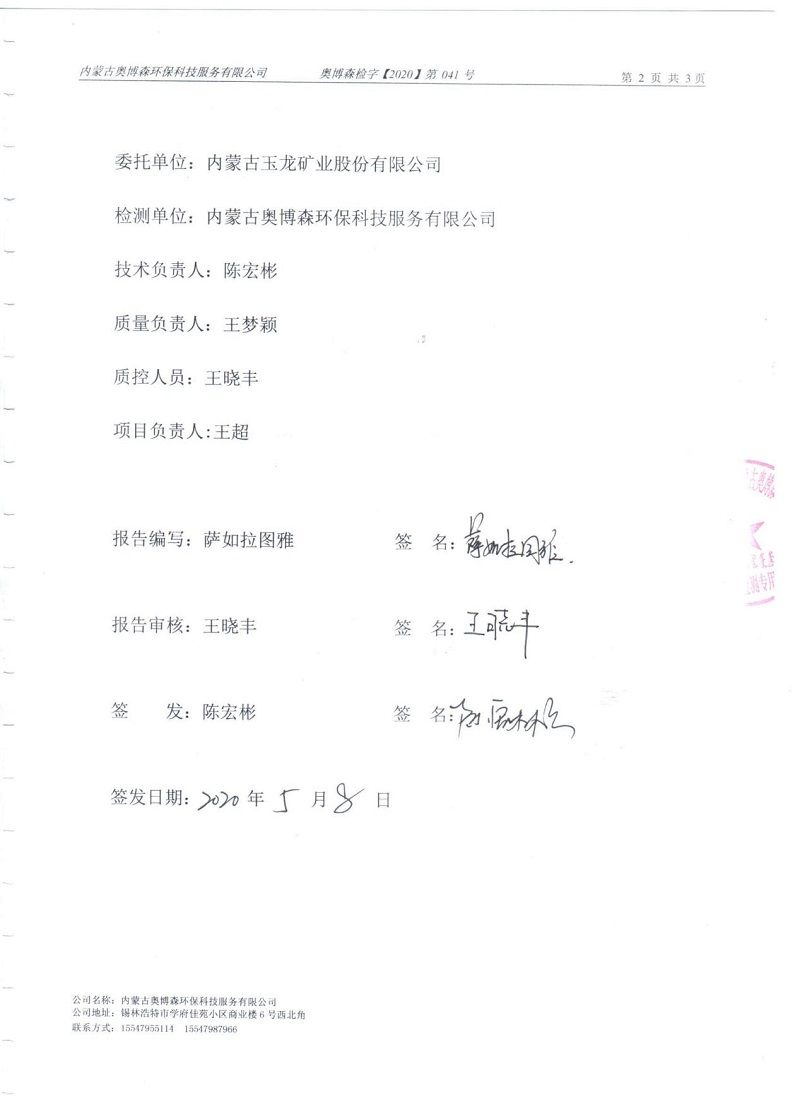 内蒙古奥博森环保科技服务有限公司 奥博森检字【2020】第 041 号 第 2 页 共 3 页
委托单位：内蒙古玉龙矿业股份有限公司
检测单位：内蒙古奥博森环保科技服务有限公司
技术负责人：陈宏彬
质量负责人：王梦颖
质控人员：王晓丰
项目负责人:王超
报告编写：萨如拉图雅 签 名：萨如拉图雅.
报告审核：王晓丰 签 名：王晓丰
签 发：陈宏彬 签 名:
签发日期：2020 年 5 月 8 日
公司名称：内蒙古奥博森环保科技服务有限公司
公司地址：锡林浩特市学府佳苑小区商业楼 6 号西北角
联系方式：15547955114 15547987966